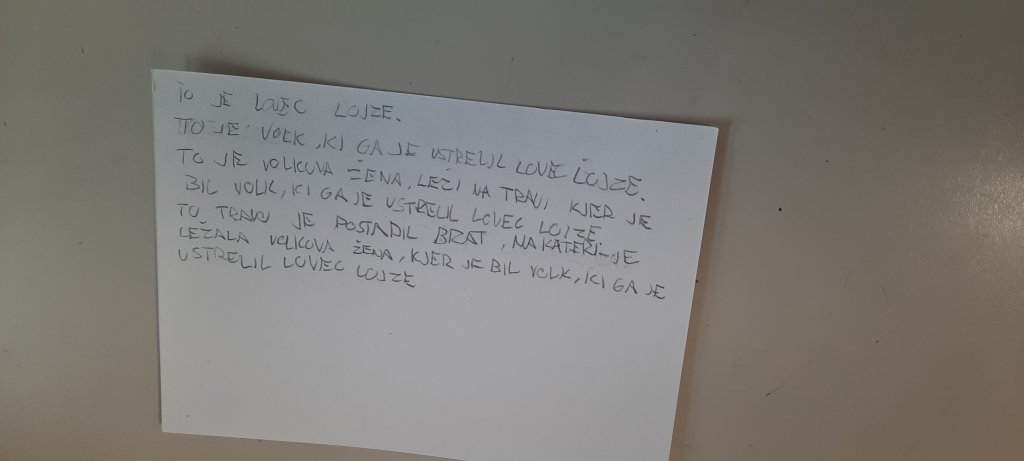 TO JE LOVEC LOJZE.
TO JE VOLK, KI GA JE USTRELIL LOVEC LOJZE.
TO JE VOLKOVA ŽENA, LEŽI NA TRAVI, KJER JE
BIL VOLK, KI GA JE USTRELIL LOVEC LOJZE
TO TRAVO JE POSTADIL BRAT, NA KATERI JE
LEŽALA VOLKOVA ŽENA, KJER JE BIL VOLK, KI GA JE
USTRELIL LOVEC LOJZE